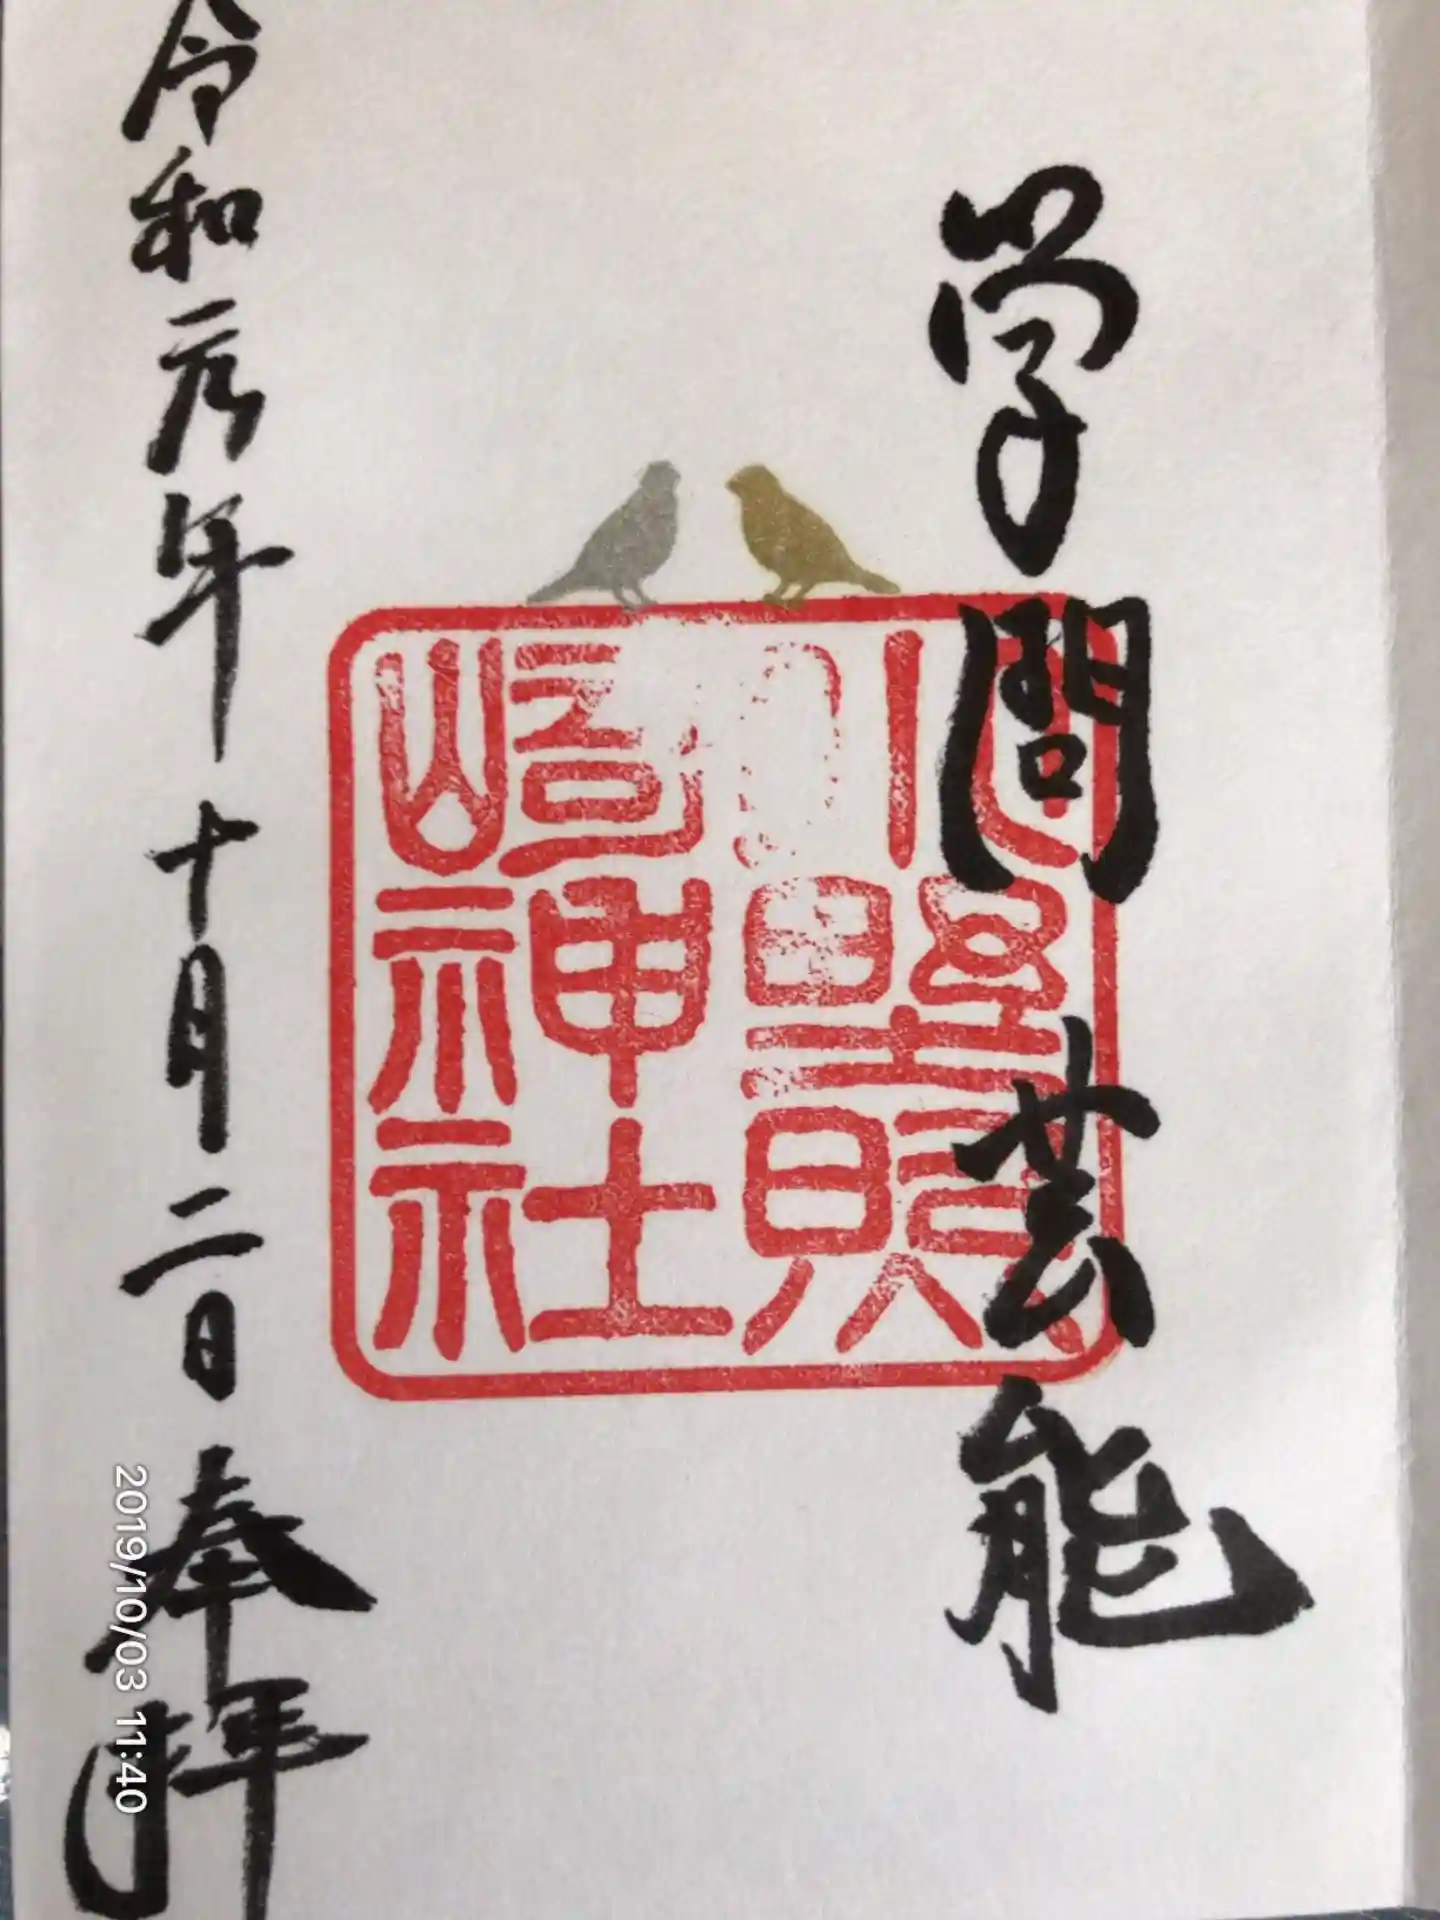 学問芸能
小野照
崎神社
令和元年十月二日奉拝
2019/10/03 11:40